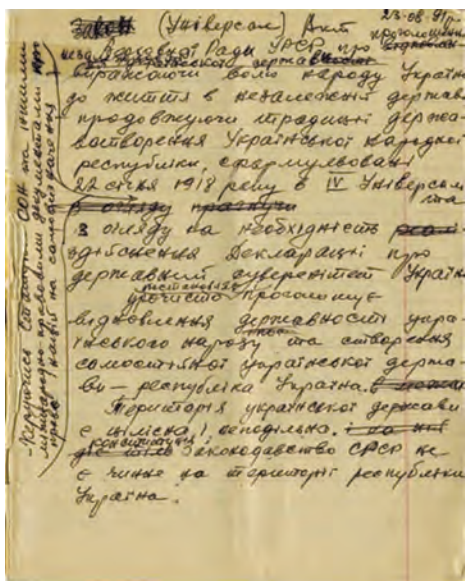 23-08-91р.
Закон (Універсал) Акт
проголошення
Верховної Ради УРСР про
незалежності
української державності
виражаючи волю народу України
до життя в незалежній державі
продовжуючи традиції держа-
вотворення Української народної
республіки, сформульовані
22 січня 1918 року в IV Універсалі
та
з огляду прагнучи
З огляду на необхідність реалі-
здійснення Декларації про
державний суверенітет України
урочисто проголошує
відновлення державності укра-
їнського народу та створення
самостійної української держа-
ви — республіка Україна.
Територія української держави
є цілісна і неподільна.
конституція
Законодавство СРСР не
є чинне на території республіки
Україна.
-Керуючись Статутом ООН та іншими
міжнародно-правовими документами про
право націй на самовизначення